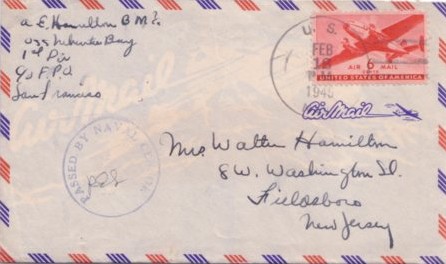 A. E. Hamilton B M 2
USS Bay
1st Div
c/o F.P.O.
San Francisco
U. S.
FEB
1945
AIR 6 MAIL
CENTS
UNITED STATES OF AMERICA
Air Mail
PASSED BY NAVAL CENSOR
Mrs Walter Hamilton
8 W. Washington St.
Fieldsboro
New Jersey